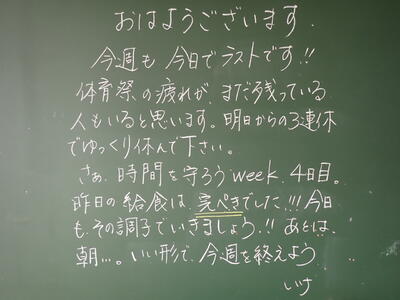 おはようございます.
今週も今日でラストです!!
体育祭の疲れが、まだ残っている
人もいると思います。明日からの3連休
でゆっくり休んで下さい。
さぁ、時間を守ろうweek、4日目。
昨日の給食は完ぺきでした!!!今日
も、その調子でいきましょう!!あとは、
朝…。いい形で、今週を終えよう